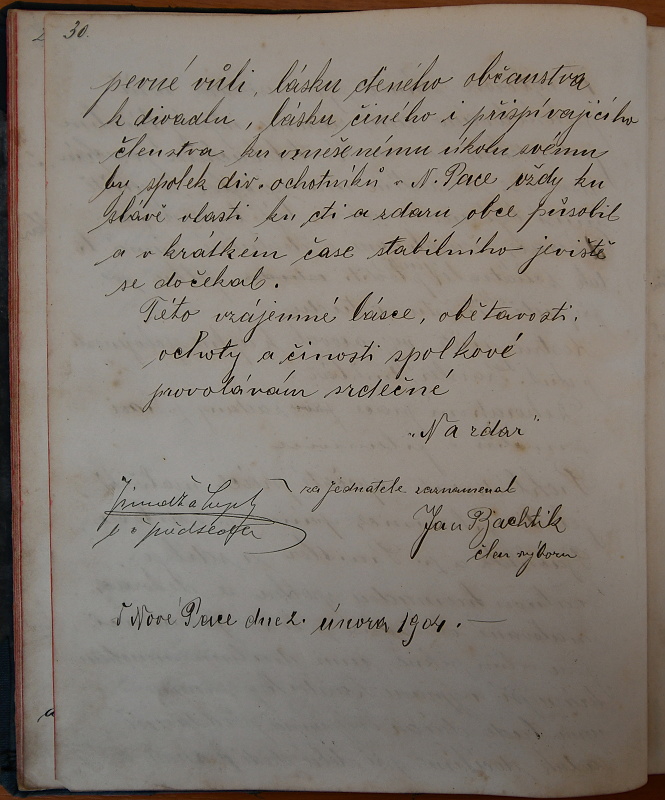 30.
pevné vůli, lásku cteného občanstva
k divadlu, lásku činého i přispívajícího
členstva ku vznešenému úkolu svému
by spolek div. ochotníků v N. Pace vždy ku
slávě vlasti ku cti a zdaru obce působil
a v krátkém čase stabilního jeviště
se dočekal.
Této vzájemné lásce, obětavosti,
ochoty a činosti spolkové
provolávám srdečné
„Na zdar"
za jednatele zaznamenal
t č předseda
Jan Bachtík
člen výboru
V Nové Pace dne 2. února 1904. —